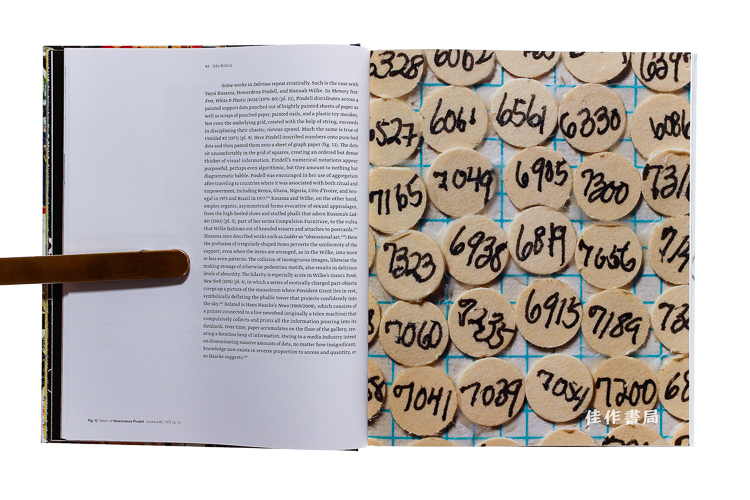 42 DELIRIOUS
Some works in Delirious repeat erratically. Such is the case with
Yayoi Kusama, Howardena Pindell, and Hannah Wilke. In Memory Test:
Free, White & Plastic (#114) (1979–80) (pl. 11), Pindell distributes across a
painted support dots punched out of brightly painted sheets of paper as
well as scraps of punched paper, painted nails, and a plastic toy monkey.
Not even the underlying grid, created with the help of string, succeeds
in disciplining their chaotic, riotous sprawl. Much the same is true of
Untitled #2 (1973) (pl. 9). Here Pindell inscribed numbers onto punched
dots and then pasted them onto a sheet of graph paper (fig. 12). The dots
sit uncomfortably in the grid of squares, creating an ordered but dense
thicket of visual information. Pindell's numerical notations appear
purposeful, perhaps even algorithmic, but they amount to nothing but
diagrammatic babble. Pindell was encouraged in her use of aggregation
after traveling to countries where it was associated with both ritual and
empowerment, including Kenya, Ghana, Nigeria, Côte d'Ivoire, and Sen-
egal in 1973 and Brazil in 1977. Kusama and Wilke, on the other hand,
employ organic, asymmetrical forms evocative of sexual appendages,
from the high-heeled shoes and stuffed phalli that adorn Kusama's Lad-
der (1963) (pl. 5), part of her series Compulsion Furniture, to the vulva
that Wilke fashions out of kneaded erasers and attaches to postcards.
(Kusama once described works such as Ladder as "obsessional art.") Here
the profusion of irregularly shaped items perverts the uniformity of the
support, even when the items are arranged, as in the Wilke, into more
or less even patterns. The collision of incongruous images, likewise the
making strange of otherwise pedestrian motifs, also results in delirious
levels of absurdity. The hilarity is especially acute in Wilke's Grant's Tomb,
New York (1976) (pl. 4), in which a series of erotically charged part-objects
creeps up a picture of the mausoleum where President Grant lies in rest,
symbolically deflating the phallic tower that projects confidently into
the sky. Related is Hans Haacke's News (1969/2008), which consists of
a printer connected to a live newsfeed (originally a telex machine) that
compulsively collects and prints all the information pouring into its
databank. Over time, paper accumulates on the floor of the gallery, cre-
ating a formless heap of information. Owing to a media industry intent
on disseminating massive amounts of data, no matter how insignificant,
knowledge now exists in reverse proportion to access and quantity, or
so Haacke suggests.
Fig. 12 Detail of Howardena Pindell, Untitled #2, 1973 (pl. 9)
6328 6062
6527 6061 6561 6330 6086
7165 7049 6905 7300
7323 6938 6819 7656
7060 7335 6915 7189
7041 7039 7054 7200
佳作書局